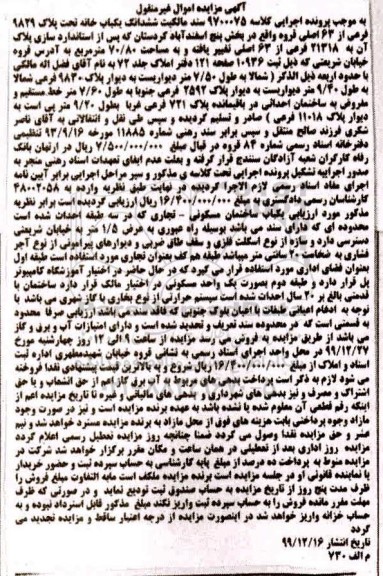 آگهی مزایده اموال غیرمنقول
به موجب پرونده اجرایی کلاسه ۹۷۰۰۰۷۵ سند مالکیت ششدانگ یکباب خانه تحت پلاک ۹۸۲۹
فرعی از ۶۳ اصلی قروه واقع در بخش پنج اسفندآباد کردستان که پس از استاندارد سازی پلاک
آن به ۲۱۳۱۸ فرعی از ۶۳ اصلی تغییر یافته و به مساحت ۷۰/۸۰ مترمربع به آدرس قروه
خیابان شریعتی که ذیل ثبت ۱۰۹۳۶ صفحه ۱۲۱ دفتر املاک جلد ۷۳ به نام آقای فضل اله مالکی
با حدود اربعه ذیل الذکر (شمالا به طول ۷/۵۰ متر دیواریست به دیوار پلاک ۹۸۳۰ فرعی شمالا
به طول ۹/۴۰ متر دیواریست به دیوار پلاک ۲۵۹۲ فرعی جنوبا به طول ۷/۶۰ متر خط مستقیم و
مفروض به ساختمان احداثی در باقیمانده پلاک ۷۲۱ فرعی غربا بطول ۹/۲۰ متر پی است به
دیوار پلاک ۱۱۰۱۸ فرعی) صادر و تسلیم گردیده و سپس طی نقل و انتقالاتی به آقای ناصر
شکری فرزند صالح منتقل و سپس برابر سند رهنی شماره ۱۱۸۸۵ مورخه ۹۳/۹/۱۶ تنظیمی
دفترخانه اسناد رسمی شماره ۸۴ قروه در قبال مبلغ ۷/۵۰۰/۰۰۰/۰۰۰ ریال در ارتهان بانک
رفاه کارگران شعبه آزادگان سنندج قرار گرفته و بعلت عدم ایفای تعهدات اسناد رهنی منجر به
صدور اجرائیه تشکیل پرونده اجرایی تحت کلاسه ی مذکور و سیر مراحل اجرایی برابر آیین نامه
اجرای مفاد اسناد رسمی لازم الاجرا گردیده در نهایت طبق نظریه وارده به ۴۸۰۰۲۰۵۸
کارشناسان رسمی دادگستری به مبلغ ۱۶/۴۰۰/۰۰۰/۰۰۰ ریال ارزیابی گردیده است برابر نظریه
مذکور مورد ارزیابی یکباب ساختمان مسکونی – تجاری که در سه طبقه احداث شده است
محدوده ای که دارای سند می باشد بوسیله راه عبوری به عرض ۱/۵ متر به خیابان شریعتی
دسترسی دارد و سازه از نوع اسکلت فلزی و سقف طاق ضربی و دیوارهای پیرامونی از نوع آجر
فشاری به ضخامت ۳۵ سانتی متر میباشد طبقه هم کف بعنوان تجاری مورد استفاده است طبقه اول
بعنوان فضای اداری مورد استفاده قرار می گیرد که در حال حاضر در اختیار آموزشگاه کامپیوتر
پل قرار دارد و طبقه دوم بصورت یک واحد مسکونی در اختیار مالک قرار دارد ساختمان با
قدمتی بالغ بر ۲۰ سال احداث شده است سیستم حرارتی از نوع بخاری با گاز شهری می باشد با
توجه به ادغام اعیانی طبقات با اعیان بلوک جنوبی که فاقد سند می باشد ارزیابی صرفا محدود
به قسمتی است که در محدوده سند تعریف و تحدید شده است و دارای امتیازات آب و برق و گاز
می باشد از طریق مزایده به فروش می رسد مزایده از ساعت ۹ الی ۱۲ روز چهارشنبه مورخ
۹۹/۱۲/۲۷ در محل واحد اجرای اسناد رسمی به نشانی قروه خیابان شهیدمطهری اداره ثبت
اسناد و املاک از مبلغ ۱۶/۴۰۰/۰۰۰/۰۰۰ ریال شروع و به بالاترین قیمت پیشنهادی نقدا فروخته
می شود لازم به ذکر است پرداخت بدهی های مربوط به آب و برق گاز اعم از حق انشعاب و یا حق
اشتراک و مصرف و نیز بدهی های شهرداری و بدهی های مالیاتی و غیره تا تاریخ مزایده اعم از
اینکه رقم قطعی آن معلوم شده یا نشده باشد به عهده برنده مزایده است و نیز در صورت وجود
مازاد وجوه پرداختی بابت هزینه های فوق از محل مازاد به برنده مزایده مسترد خواهد شد و نیم
عشر و حق مزایده نقدا وصول می گردد ضمنا چنانچه روز مزایده تعطیل رسمی اعلام گردد
مزایده روز اداری بعد از تعطیلی در همان ساعت و مکان مقرر برگزار خواهد شد شرکت در
مزایده منوط به پرداخت ده درصد از مبلغ پایه کارشناسی به حساب سپرده ثبت و حضور خریدار
یا نماینده قانونی او در جلسه مزایده است برنده مزایده مکلف است مابه التفاوت مبلغ فروش را
ظرف مدت پنج روز از تاریخ مزایده به حساب صندوق ثبت تودیع نماید و در صورتی که ظرف
مهلت مقرر مانده فروش را به حساب سپرده ثبت واریز نکند مبلغ مذکور قابل استرداد نبوده و به
حساب خزانه واریز خواهد شد در اینصورت مزایده از درجه اعتبار ساقط و مزایده تجدید می
گردد
تاریخ انتشار ۹۹/۱۲/۱۶
م الف ۷۳۰